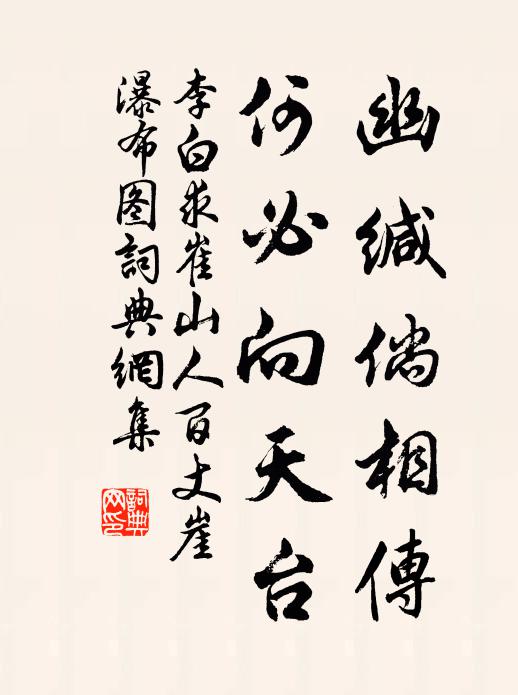 幽缄倘相傳
何必向天台
李白求崔山人百丈崖
瀑布图詞典網集
詞典网印